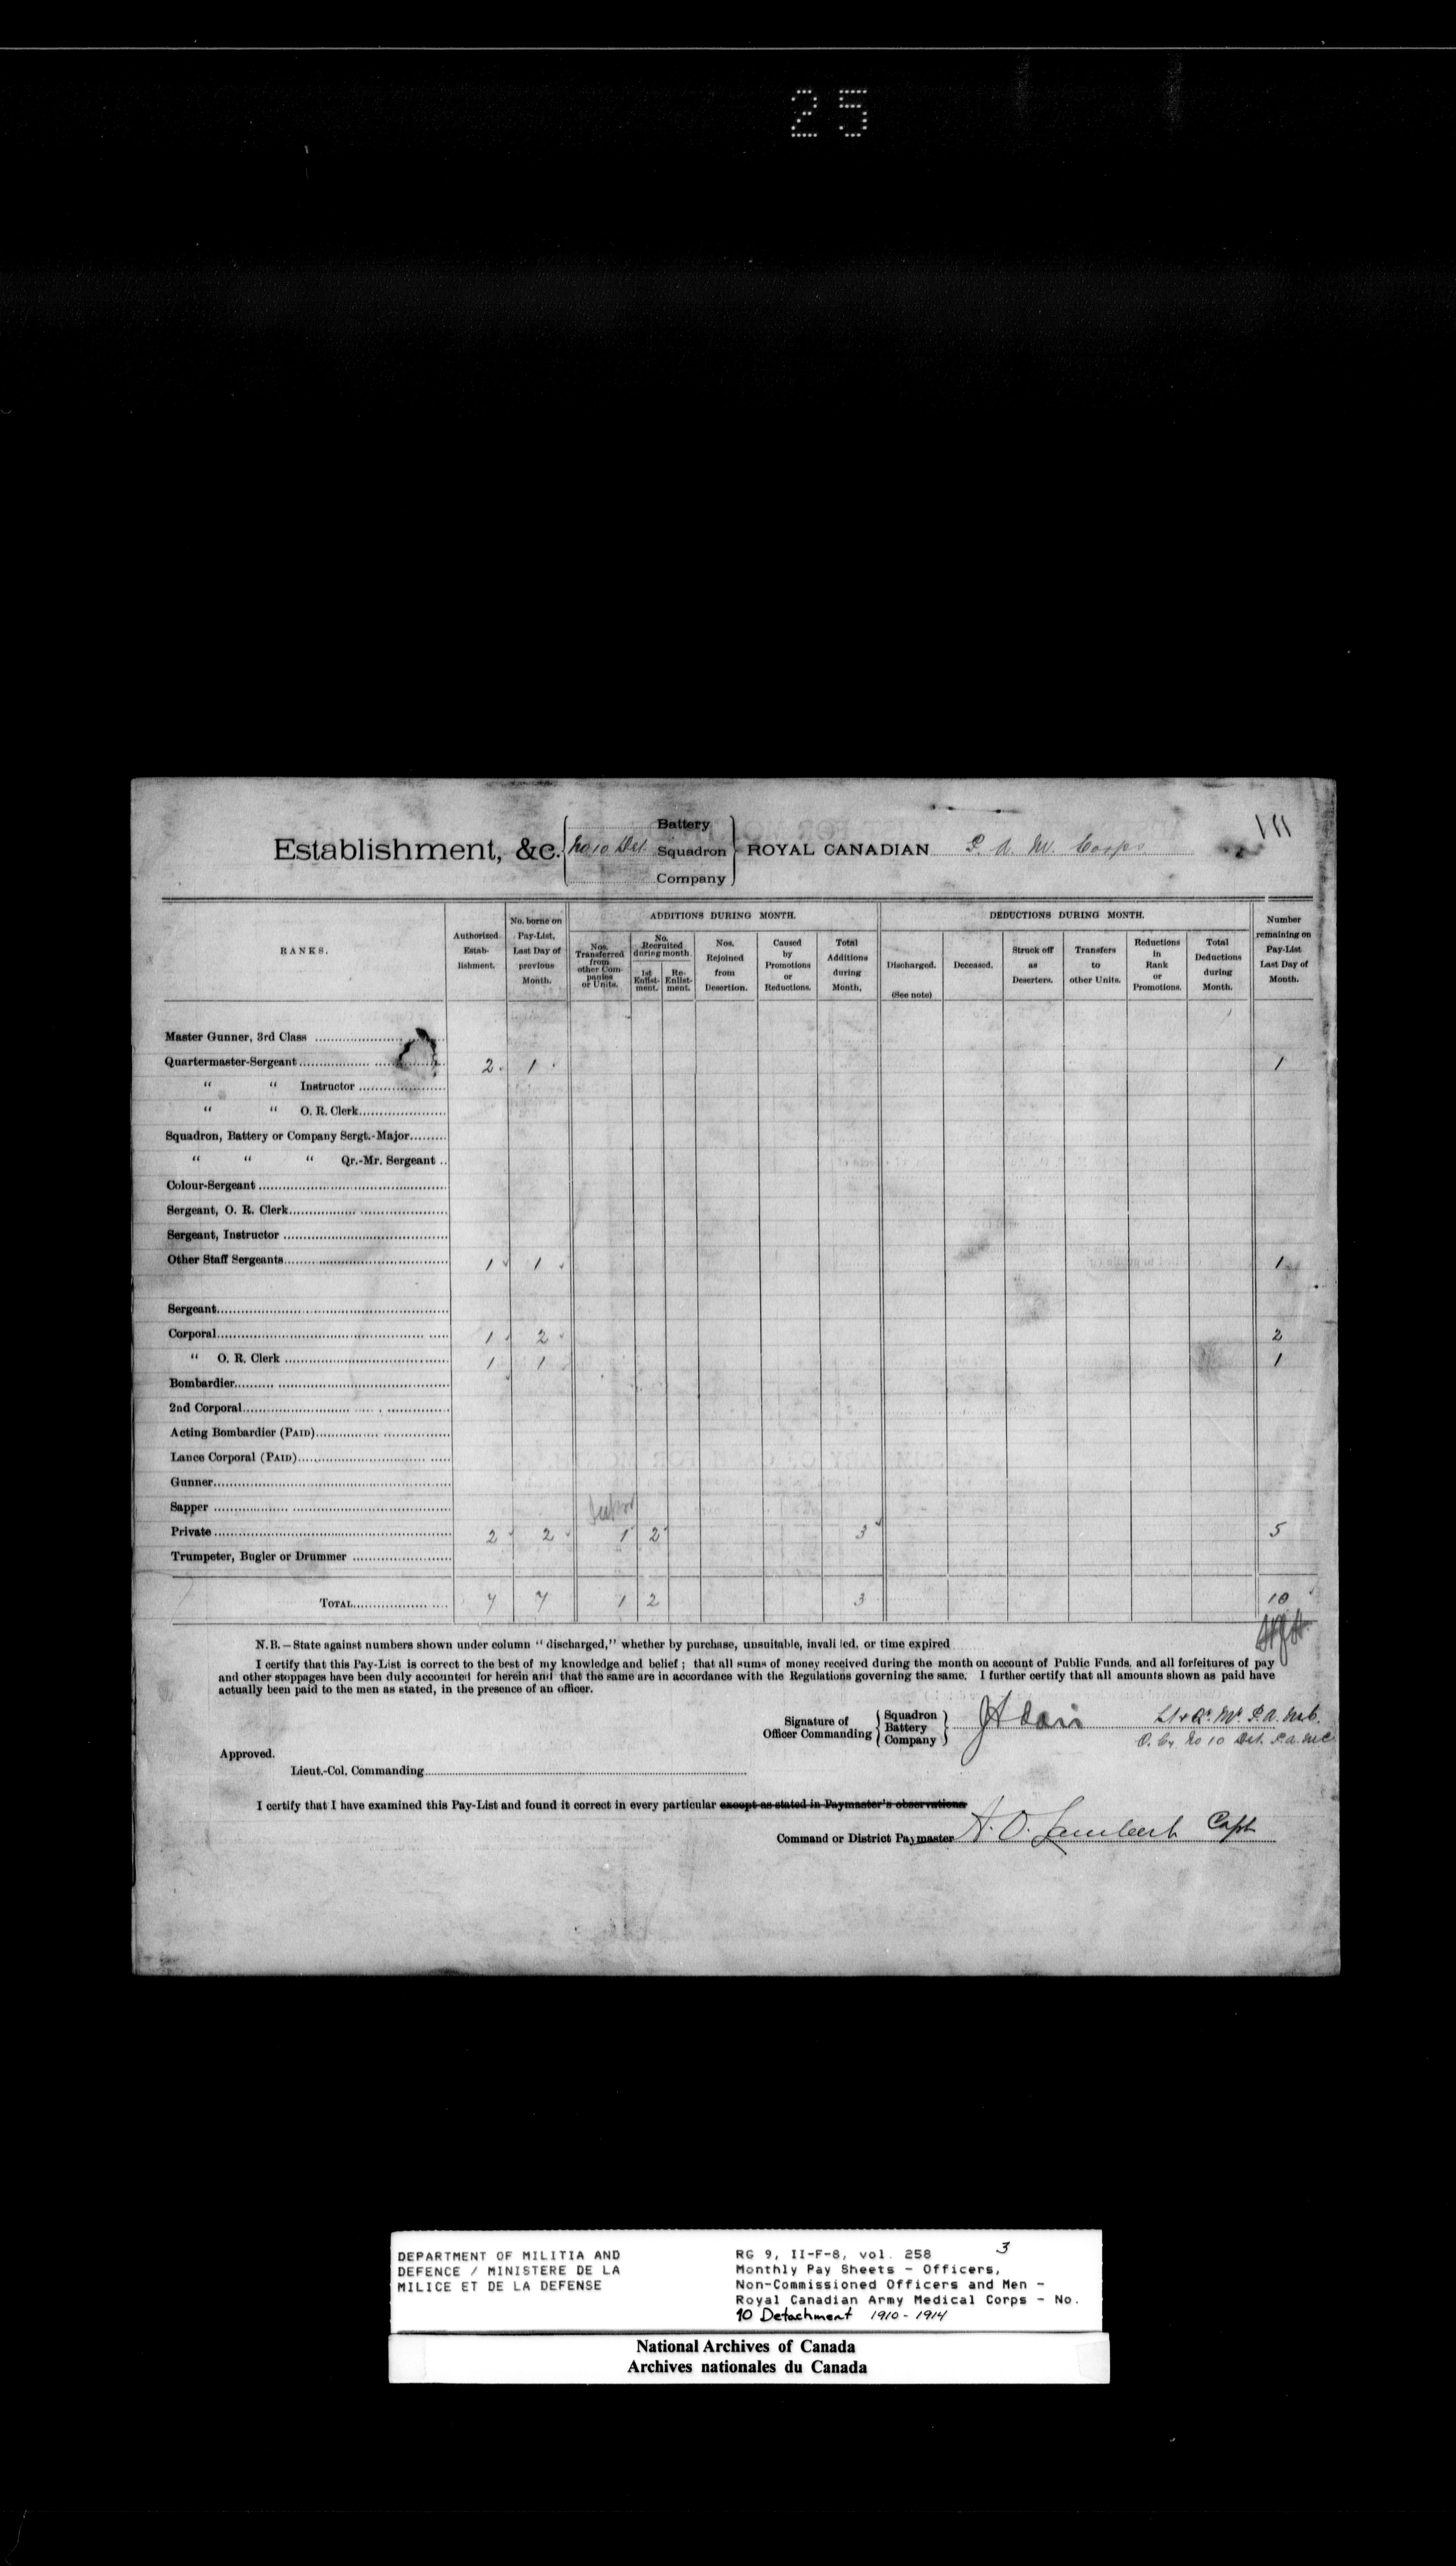 25
111
Establishment, &c. No 10 Det. Battery Squadron Company ROYAL CANADIAN P. A. M. Corps
RANKS.
Authorized Estab-lishment.
No. borne on Pay-List, Last Day of previous Month.
ADDITIONS DURING MONTH.
Nos. Transferred from other Companies or Units.
No. Recruited during month.
1st Enlist-ment.
Re-Enlist-ment.
Nos. Rejoined from Desertion.
Caused by Promotions or Reductions.
Total Additions during Month.
DEDUCTIONS DURING MONTH.
Discharged. (See note)
Deceased.
Struck off as Deserters.
Transfers to other Units.
Reductions in Rank or Promotions.
Total Deductions during Month.
Number remaining on Pay-List Last Day of Month.
Master Gunner, 3rd Class
Quartermaster-Sergeant 2 1 1
“ “ Instructor
“ “ O. R. Clerk
Squadron, Battery or Company Sergt.-Major
“ “ “ Qr.-Mr. Sergeant
Colour-Sergeant
Sergeant, O. R. Clerk
Sergeant, Instructor
Other Staff Sergeants 1 1 1
Sergeant
Corporal 1 2 2
“ O. R. Clerk 1 1 1
Bombardier
2nd Corporal
Acting Bombardier (PAID)
Lance Corporal (PAID)
Gunner
Sapper
Private 2 2 1 2 3 5
Trumpeter, Bugler or Drummer
TOTAL 7 7 1 2 3 10
N.B.—State against numbers shown under column “discharged,” whether by purchase, unsuitable, invalided, or time expired
I certify that this Pay-List is correct to the best of my knowledge and belief; that all sums of money received during the month on account of Public Funds, and all forfeitures of pay
and other stoppages have been duly accounted for herein and that the same are in accordance with the Regulations governing the same. I further certify that all amounts shown as paid have
actually been paid to the men as stated, in the presence of an officer.
Signature of Officer Commanding Squadron Battery Company Lt & Qr. Mr. P. A. M. C.
O. C. No 10 Det. P. A. M. C.
Approved.
Lieut.-Col. Commanding
I certify that I have examined this Pay-List and found it correct in every particular except as stated in Paymaster's observations
Command or District Paymaster A. O. Lambert Capt
DEPARTMENT OF MILITIA AND
DEFENCE / MINISTERE DE LA
MILICE ET DE LA DEFENSE
RG 9, II-F-8, vol. 258 3
Monthly Pay Sheets - Officers,
Non-Commissioned Officers and Men -
Royal Canadian Army Medical Corps - No.
10 Detachment 1910-1914
National Archives of Canada
Archives nationales du Canada